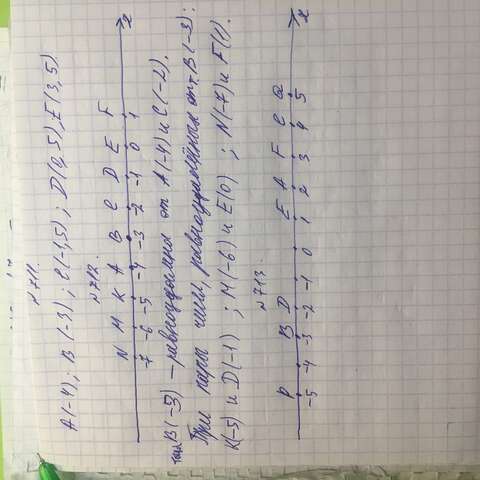 №711.
А(-4); В(-3); С(-1,5); D(0,5); Е(3,5).
№712.
N M K A B C D E F
-7 -6 -5 -4 -3 -2 -1 0 1 x
точка В(-3) – равноудалена от А(-4) и С(-2).
Три пары чисел, равноудалённых от т. В(-3):
К(-5) и D(-1) ; М(-6) и Е(0) ; N(-7) и F(1).
№713.
P B D E A F C Q
-5 -4 -3 -2 -1 0 1 2 3 4 5 x